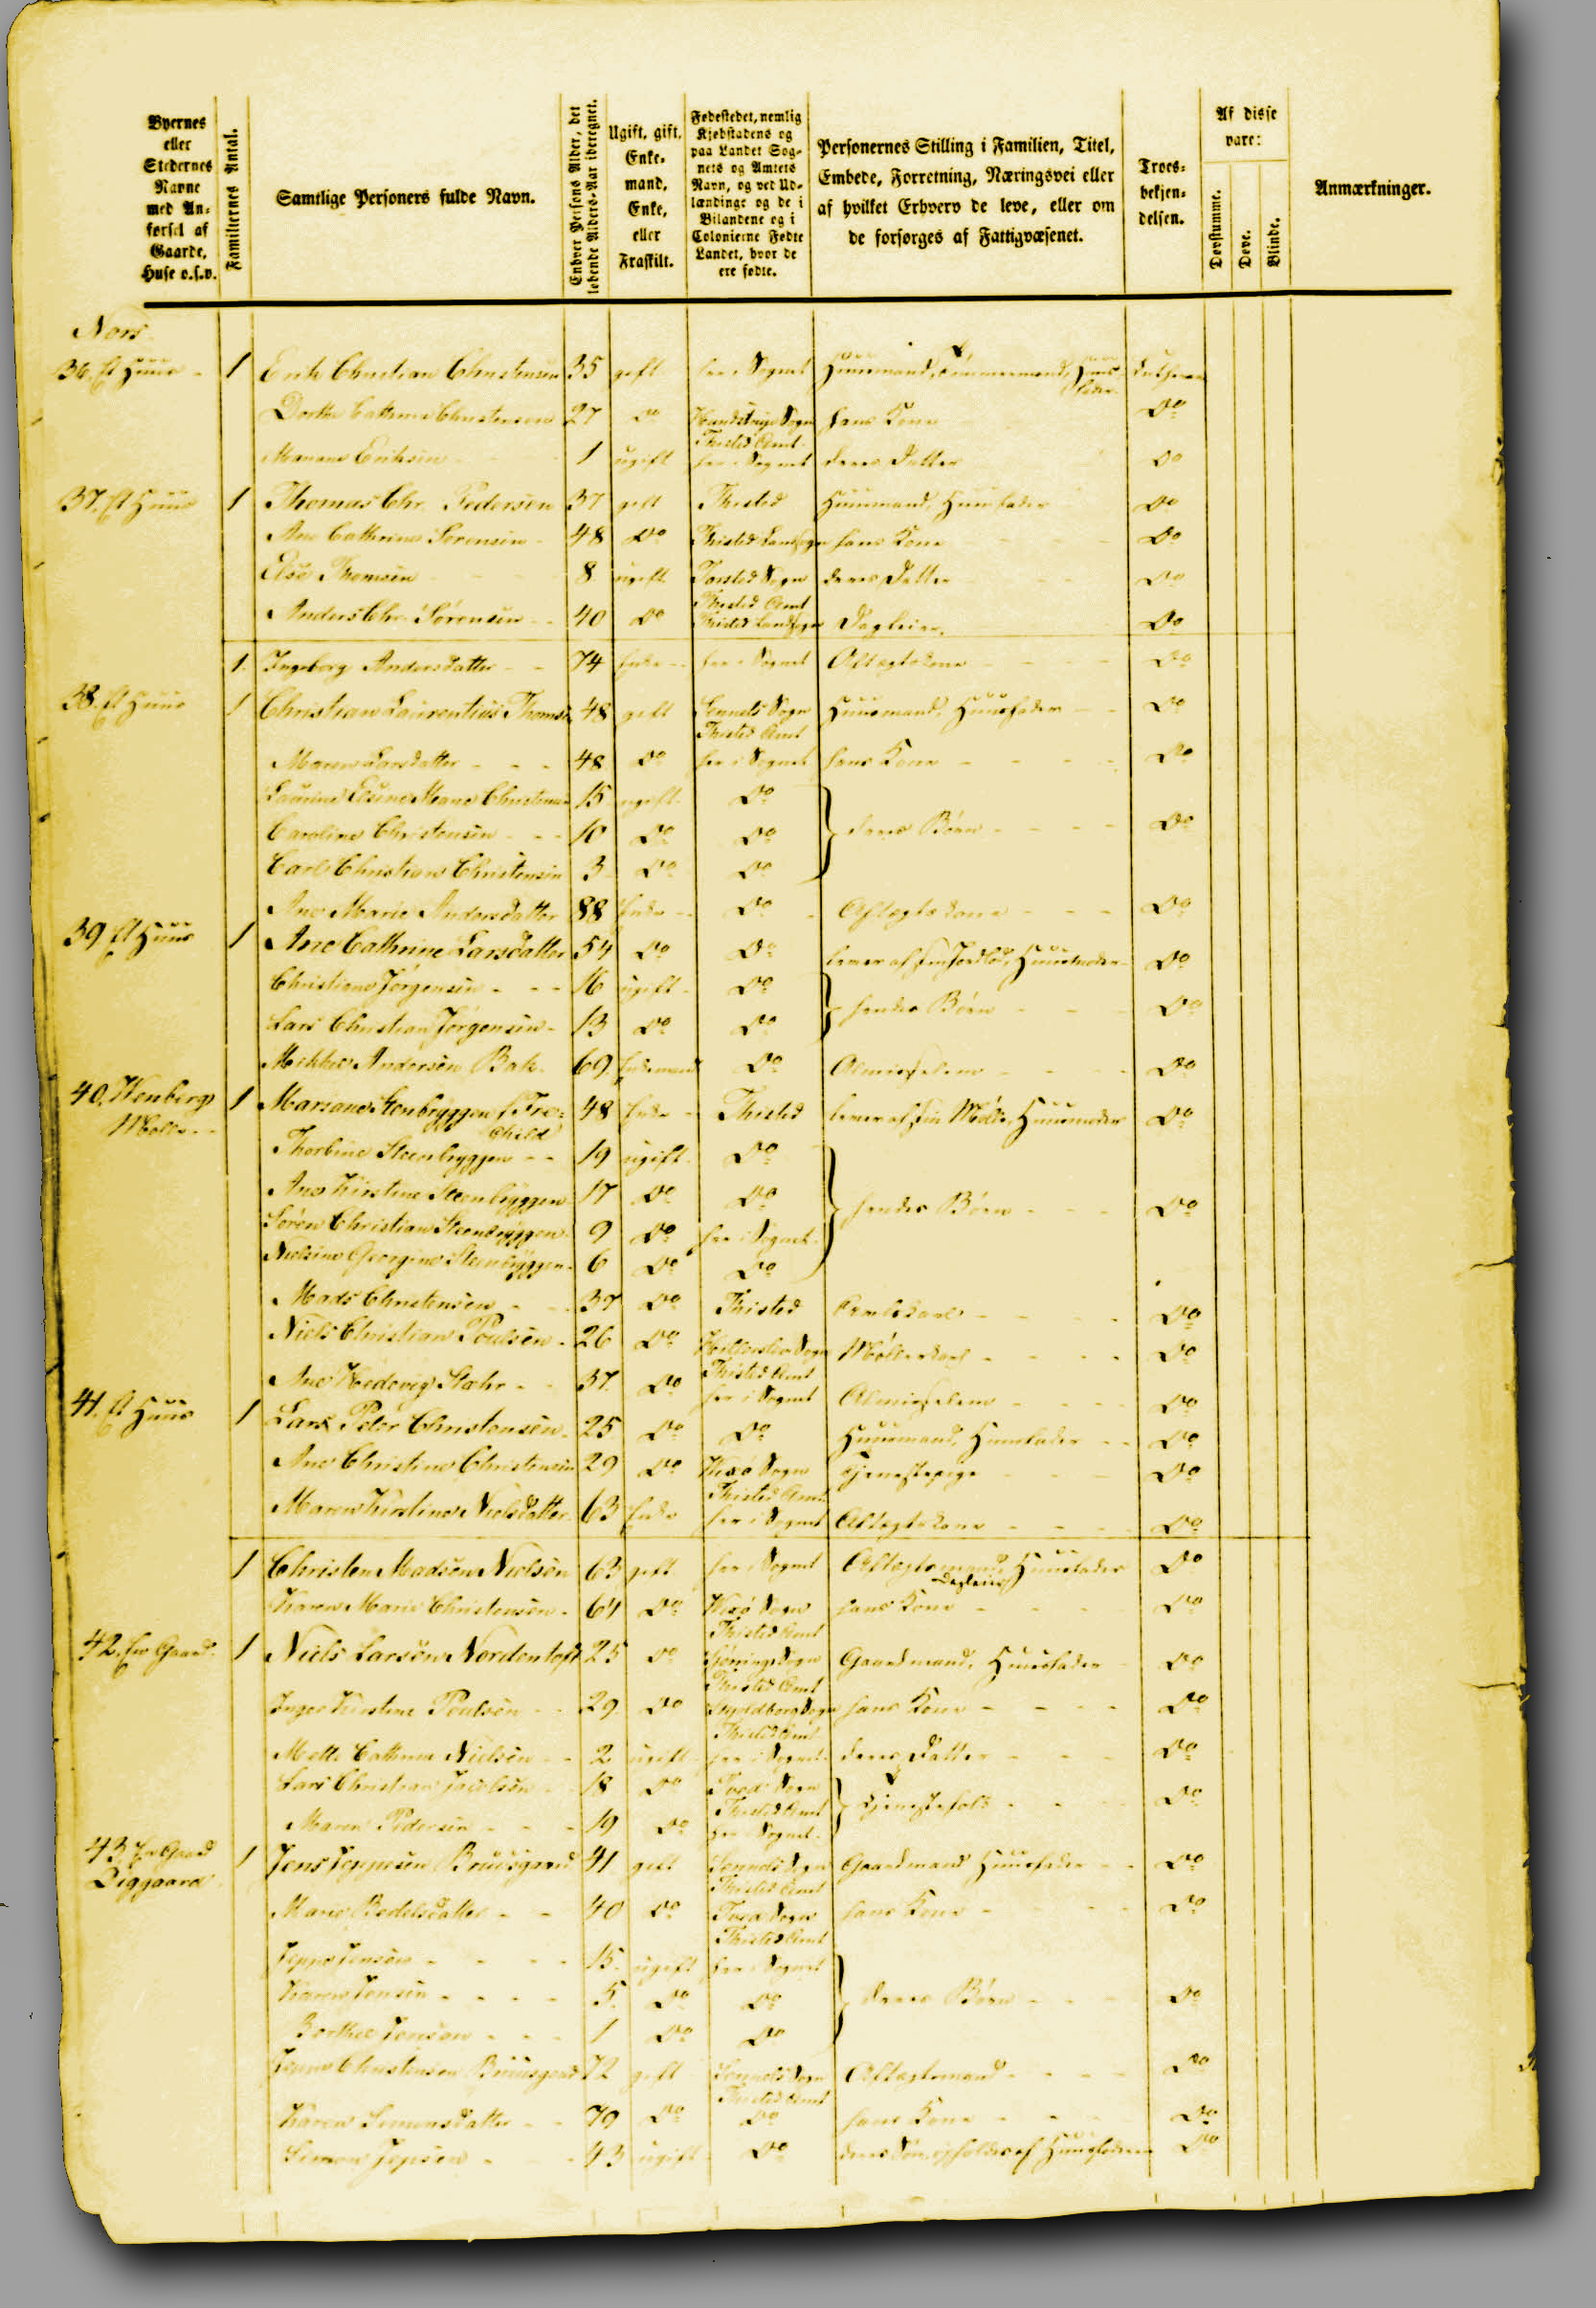 Byernes
eller
Stedernes
Navne
med An-
førsel af
Gaarde,
Huse o.s.v.
Familiernes Antal.
Samtlige Personers fulde Navn.
Enhver Persons Alder, det
løbende Alders-Aar iberegnet.
Ugift, gift,
Enke-
mand,
Enke,
eller
Fraskilt.
Fødestedet, nemlig
Kjøbstadens og
paa Landet Sog-
nets og Amtets
Navn, og ved Ud-
lændinge og de i
Bilandene og i
Colonierne Fødte
Landet, hvor de
ere fødte.
Personernes Stilling i Familien, Titel,
Embede, Forretning, Næringsvei eller
af hvilket Erhverv de leve, eller om
de forsørges af Fattigvæsenet.
Troes-
bekjen-
delsen.
Af disse
vare:
Døvstumme.
Døve.
Blinde.
Anmærkninger.
Nors
36. Et Huus 1 Erik Christian Christensen 35 gift her i Sognet Huusmand, Tømmermand, Huus- Luthersk
fader
Dorthe Cathrine Christensen 27 Do Hundstrup Sogn hans Kone Do
Thisted Amt
Mariane Eriksen 1 ugift her i Sognet deres Datter Do
37. Et Huus 1 Thomas Chr. Pedersen 37 gift Thisted Huusmand, Huusfader Do
Ane Cathrine Sørensen 48 Do Thisted Landsogn hans Kone Do
Else Thomsen 8 ugift Torsted Sogn deres Datter Do
Thisted Amt
Anders Chr. Sørensen 40 Do Thisted Landsogn Dagleier Do
1. Ingeborg Andersdatter 74 Enke her i Sognet Aftægtskone Do
38. Et Huus 1 Christian Laurentius Thomsen 48 gift Sennels Sogn Huusmand, Huusfader Do
Thisted Amt
Maren Larsdatter 48 Do her i Sognet hans Kone Do
Laurine Elsine Marie Christensen 15 ugift Do
Caroline Christensen 10 Do Do deres Børn Do
Carl Christian Christensen 3 Do Do
Ane Marie Andersdatter 88 Enke Do Aftægtskone Do
39 Et Huus 1 Ane Cathrine Larsdatter 54 Do Do lever af sin Jordlod, Huusmoder Do
Christiane Jørgensen 16 ugift Do
hendes Børn Do
Lars Christian Jørgensen 13 Do Do
Mikkel Andersen Bak 69 Enkemand Do Almisselem Do
40. 1 Mariane Steenbryggen f. Fre- 48 Enke Thisted lever af sin Mølle, Huusmoder Do
Mølle child
Thorbine Steenbryggen 19 ugift Do
Ane Kirstine Steenbryggen 17 Do Do hendes Børn Do
Søren Christian Steenbryggen 9 Do her i Sognet
Nielsine Georgine Steenbryggen 6 Do Do
Mads Christensen 37 Do Thisted Do
Niels Christian Poulsen 26 Do Hillerslev Sogn Møllerkarl Do
Thisted Amt
Ane Hedevig Stæhr 37 Do her i Sognet Almisselem Do
41. Et Huus 1 Lars Peter Christensen 25 Do Do Huusmand, Huusfader Do
Ane Christine Christensen 29 Do Vixø Sogn Tjenestepige Do
Thisted Amt
Maren Kirstine Nielsdatter 63 Enke her i Sognet Aftægtskone Do
1 Christen Madsen Nielsen 63 gift her i Sognet Aftægtsmand, Huusfader Do
Dagleier
Karen Marie Christensen 64 Do Vixø Sogn hans Kone Do
Thisted Amt
42. En Gaard 1 Niels Larsen Nordentoft 25 Do Hjørring Sogn Gaardmand, Huusfader Do
Thisted Amt
Inger Kirstine Poulsen 29 Do Skyoldborg Sogn hans Kone Do
Thisted Amt
Mette Cathrine Nielsen 2 ugift her i Sognet deres Datter Do
Lars Christian Jacobsen 18 Do Tved Sogn
Thisted Amt Tjenestefolk Do
Maren Pedersen 19 Do her i Sognet
43. En Gaard 1 Jens Jeppesen Bruusgaard 41 gift Sennels Sogn Gaardmand Huusfader Do
Diggaard Thisted Amt
Marie Bodelsdatter 40 Do Tved Sogn hans Kone Do
Thisted Amt
Jeppe Jensen 15 ugift her i Sognet
Karen Jensen 5 Do Do deres Børn Do
Berthel Jensen 1 Do Do
Jeppe Christensen Bruusgaard 72 gift Sennels Sogn Aftægtsmand Do
Thisted Amt
Karen Simonsdatter 79 Do Do hans Kone Do
Simon Jepsen 43 ugift Do deres Søn, opholdes af Huusfaderen Do